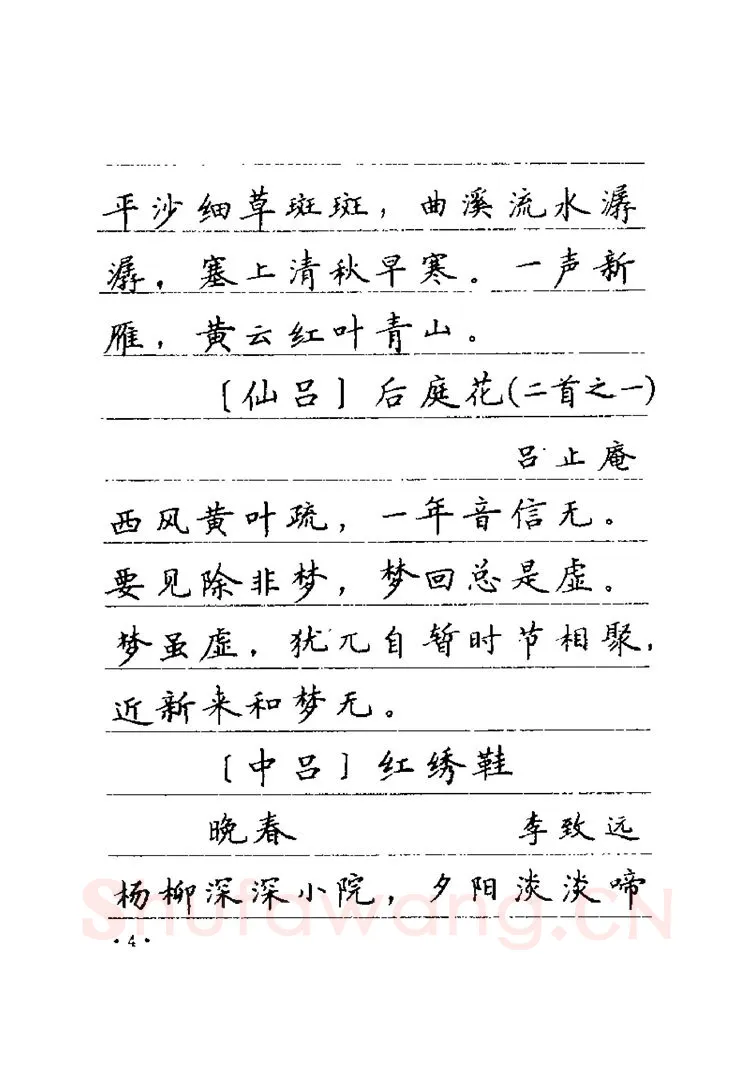 平沙细草斑斑，曲溪流水潺
潺，塞上清秋早寒。一声新
雁，黄云红叶青山。
〔仙吕〕后庭花(二首之一)
吕止庵
西风黄叶疏，一年音信无。
要见除非梦，梦回总是虚。
梦虽虚，犹兀自暂时节相聚，
近新来和梦无。
〔中吕〕红绣鞋
晚春 李致远
杨柳深深小院，夕阳淡淡啼
Shufawang.CN
·4·